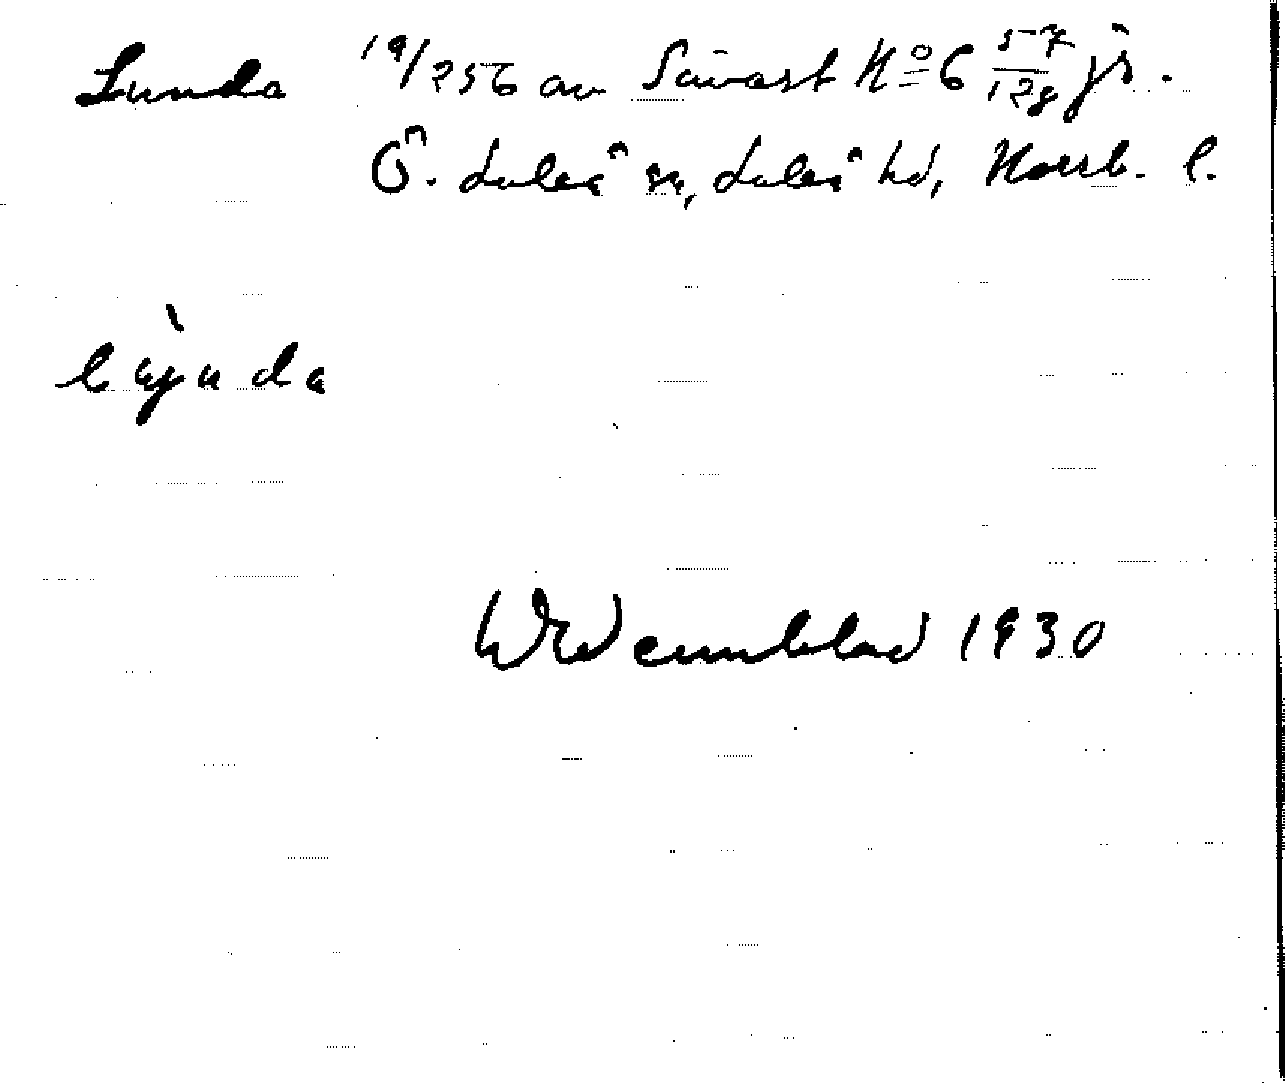 Lunda 19/256 av Sävast No 6 57/128 js.
Ö. Luleå sn, Luleå hd, Norrb. l.
Wennblad 1930